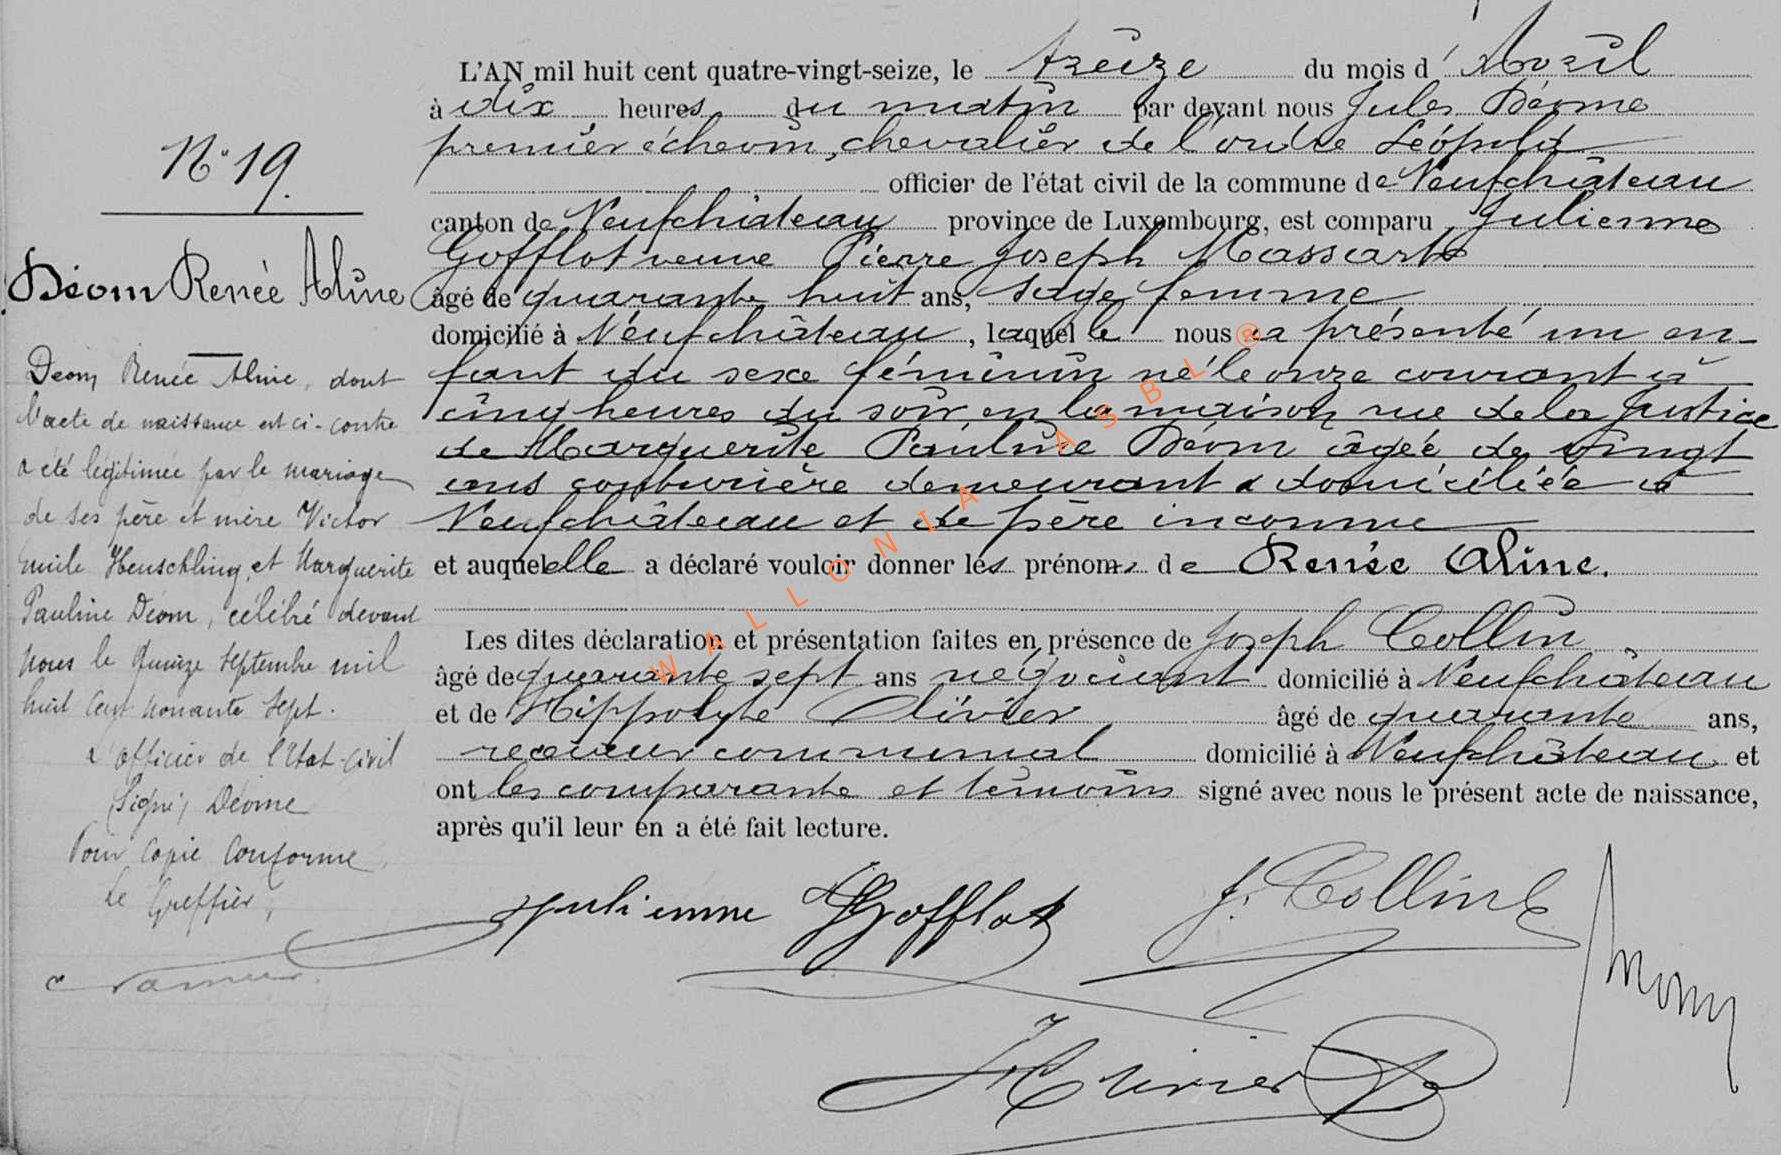 N° 19.
Déom Renée Aline
Déom Renée Aline, dont
l'acte de naissance est ci-contre
a été légitimée par le mariage
de ses père et mère Victor
Emile Heuschling et Marguerite
Pauline Déom, célébré devant
nous le quinze Septembre mil
huit cent nonante sept.
L'officier de l'Etat-civil
(Signé) Déome
Pour copie conforme
Le Greffier,
L'AN mil huit cent quatre-vingt-seize, le treize du mois d'Avril
à dix heures du matin par devant nous Jules Déome
premier échevin, chevalier de l'ordre Léopold
officier de l'état civil de la commune de Neufchâteau
canton de Neufchâteau province de Luxembourg, est comparu Julienne
Gofflot veuve Pierre Joseph Massart
âgé de quarante huit ans, sage femme
domicilié à Neufchâteau, laquelle nous a présenté un en-
fant du sexe féminin né le onze courant à
cinq heures du soir en la maison rue de la Justice
de Marguerite Pauline Déom âgée de vingt
ans couturière demeurant & domiciliée à
Neufchâteau et de père inconnu
et auquelelle a déclaré vouloir donner les prénoms de Renée Aline.
Les dites déclaration et présentation faites en présence de Joseph Collin
âgé de quarante sept ans négociant domicilié à Neufchâteau
et de Hippolyte Olivier âgé de quarante ans,
receveur communal domicilié à Neufchâteau et
ont les comparante et témoins signé avec nous le présent acte de naissance,
après qu'il leur en a été fait lecture.
Julienne Gofflot J. Collin
H Olivier
WALLONIA ASBL ®